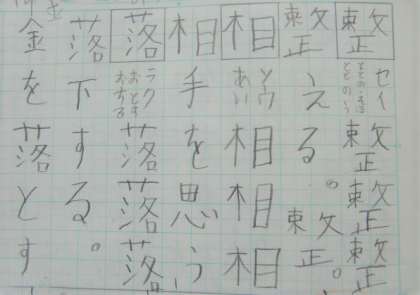 整 セイ ととのえる ととのう 整整整
整える。整。
相 ソウ あい 相相相
相手を思う
落 ラク おとす おちる 落落落
落下する。
金を落とす